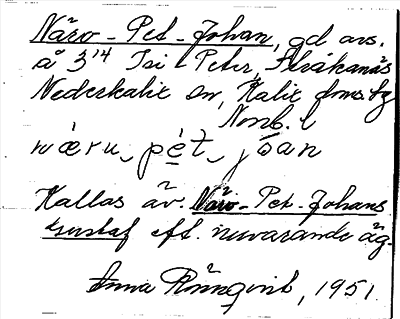 Näro-Pet-Johan, gd avs.
å 3¹⁴ Isi Peter, Stråkanäs
Nederkalix sn, Kalix dms. tg
Norrb. l
næru-pèt-jöan
Kallas äv. Näro-Pet-Johans
Gustaf eft. nuvarande äg.
Anna Rönnqvist, 1951.